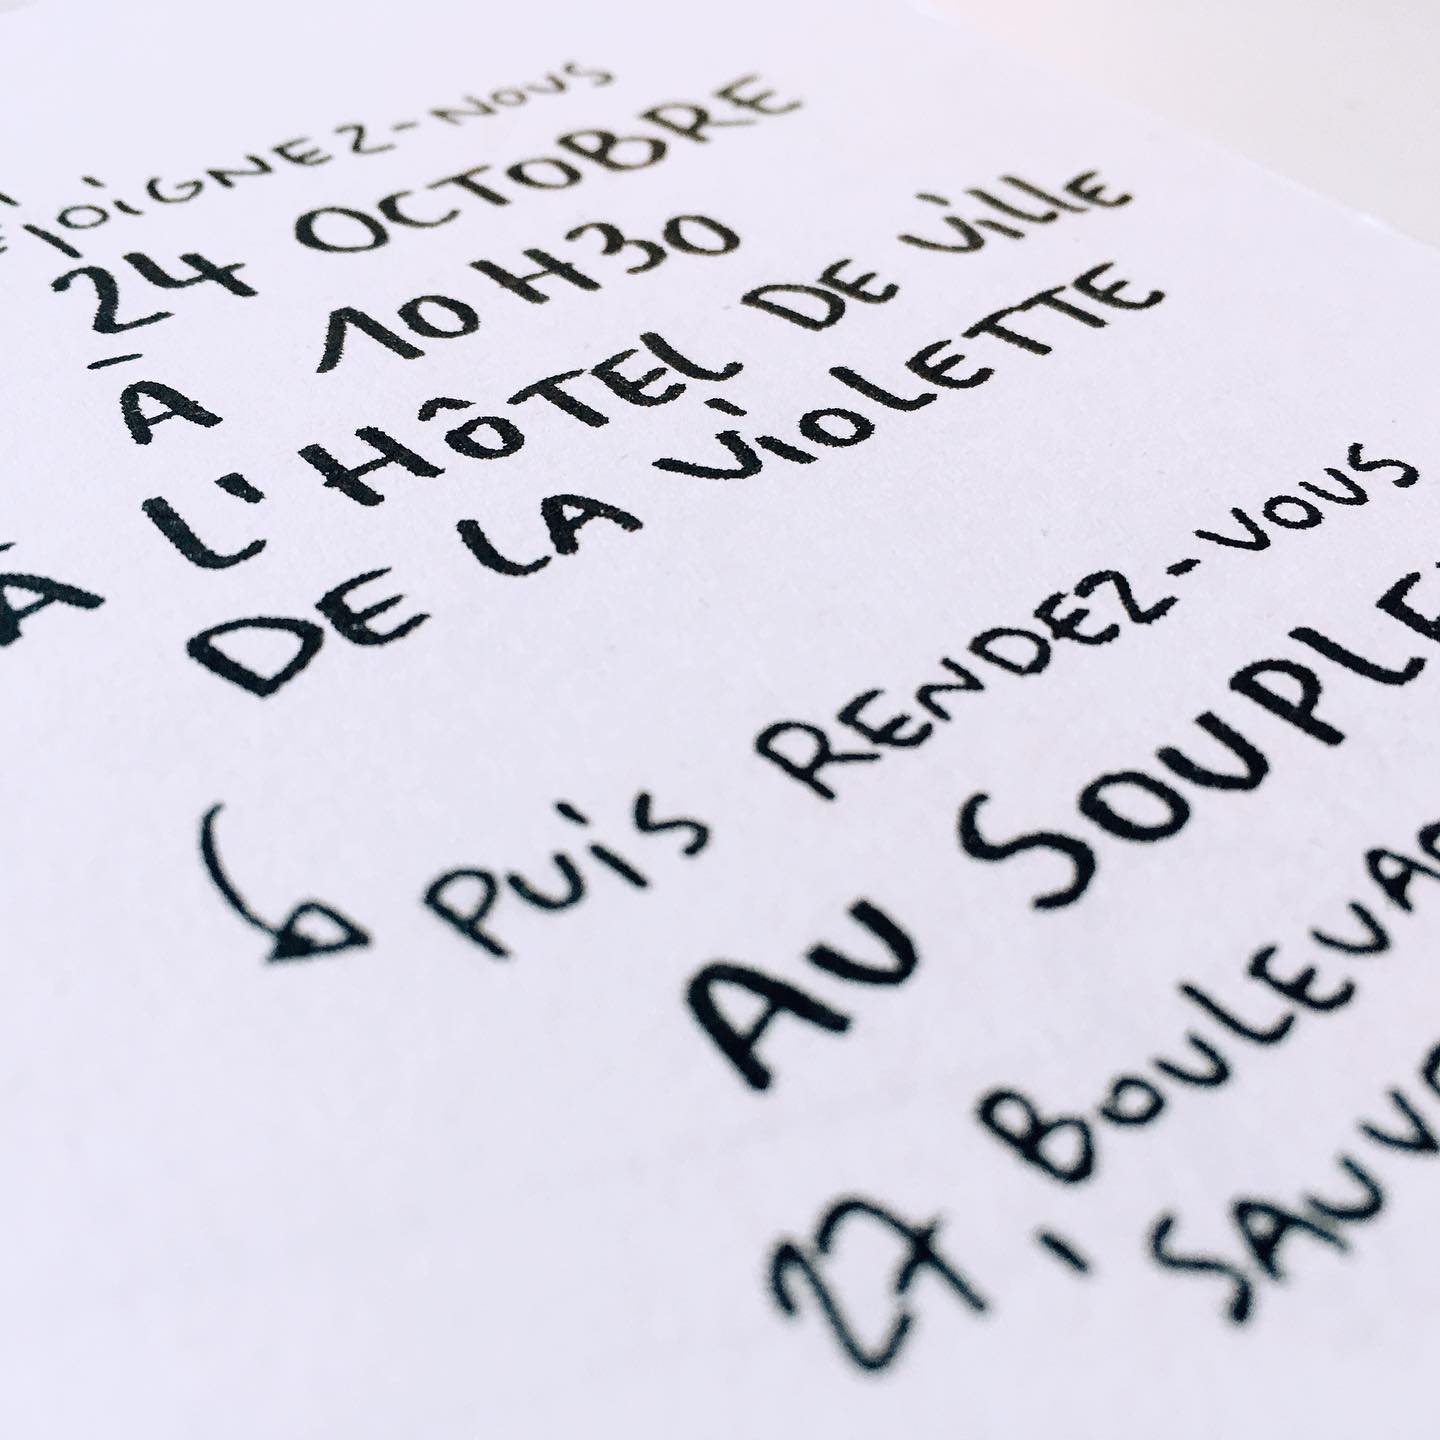 REJOIGNEZ-NOUS
24 OCTOBRE
À 10H30
À L'HÔTEL DE VILLE
DE LA VIOLETTE
PUIS RENDEZ-VOUS
AU
27, BOULEVARD